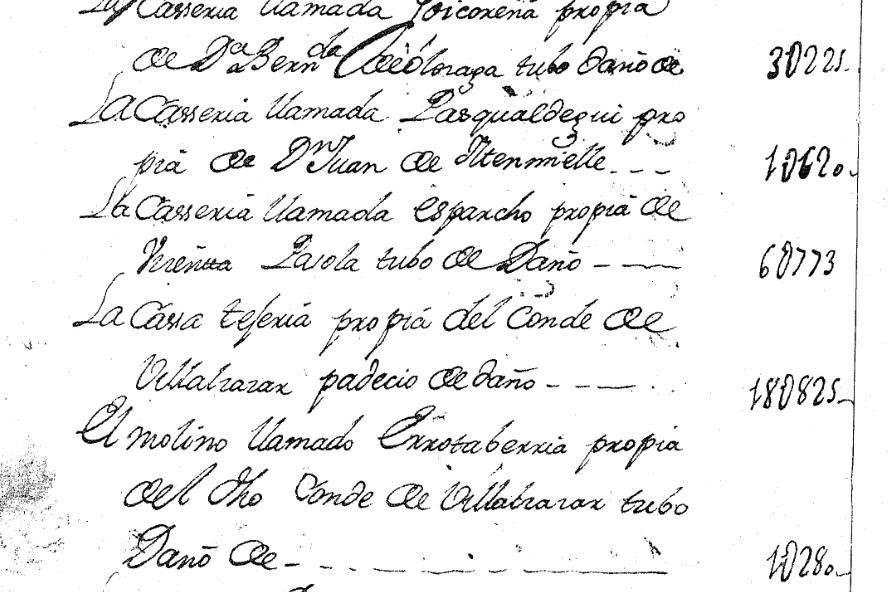 La Casseria llamada Goicorena propia
de Dª Bernda de olozaga tubo daño de 30225
La Casseria llamada Pasqualdegui pro
pia de Dn Juan de 10620
La Casseria llamada esparcho propia de
Vicentta Lasola tubo de Daño 60773
La Cassa tejeria propia del Conde de
Villalzazar padecio de daño 180825
El molino llamado Errotaberria propia
del dho Conde de Villalzazar tubo
Daño de 10280